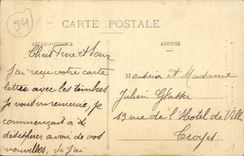 59
CARTE POSTALE
CORRESPONDANCE
ADRESSE
Cher Frère et Sœur
J'ai reçu votre carte
lettre avec les timbres
je vous en remercie, je
commençait à
désespérer avoir de vos
nouvelles, je j'ai
Monsieur et Madame
Julien
13 rue de l'Hotel de Ville
Troyes